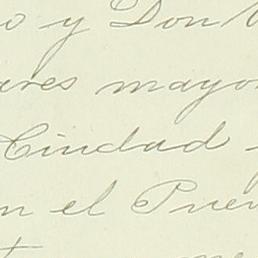 o y Don
ares mayo
Ciudad
n el Pue